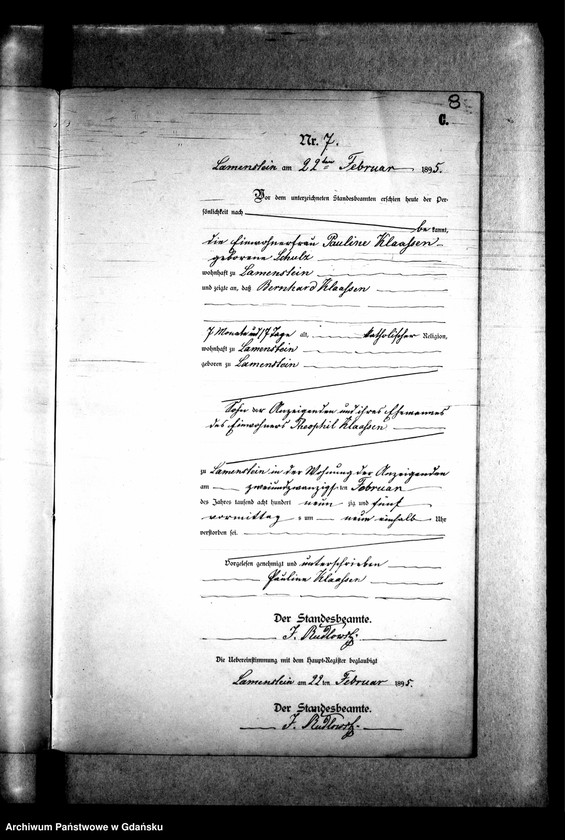 8
C.
Nr. 7.
Lamenstein am 22ten Februar 1895.
Vor dem unterzeichneten Standesbeamten erschien heute der Per-
sönlichkeit nach
be kannt,
die Einwohnerfrau Pauline Klaassen
geborene Schulz
wohnhaft zu Lamenstein
und zeigte an, daß Bernhard Klaassen
7 Monate und 17 Tage alt, katholischer Religion,
wohnhaft zu Lamenstein
geboren zu Lamenstein
Sohn der Anzeigenden und ihres Ehemannes
des Einwohners Theophil Klaassen
zu Lamenstein in der Wohnung der Anzeigenden
am zweiundzwanzigsten Februar
des Jahres tausend acht hundert neun zig und fünf
vormittag s um neun einhalb Uhr
verstorben sei.
Vorgelesen genehmigt und unterschrieben
Pauline Klaassen
Der Standesbeamte.
Die Uebereinstimmung mit dem Haupt-Register beglaubigt
Lamenstein am 22 ten Februar 1895.
Der Standesbeamte.
Archiwum Państwowe w Gdańsku